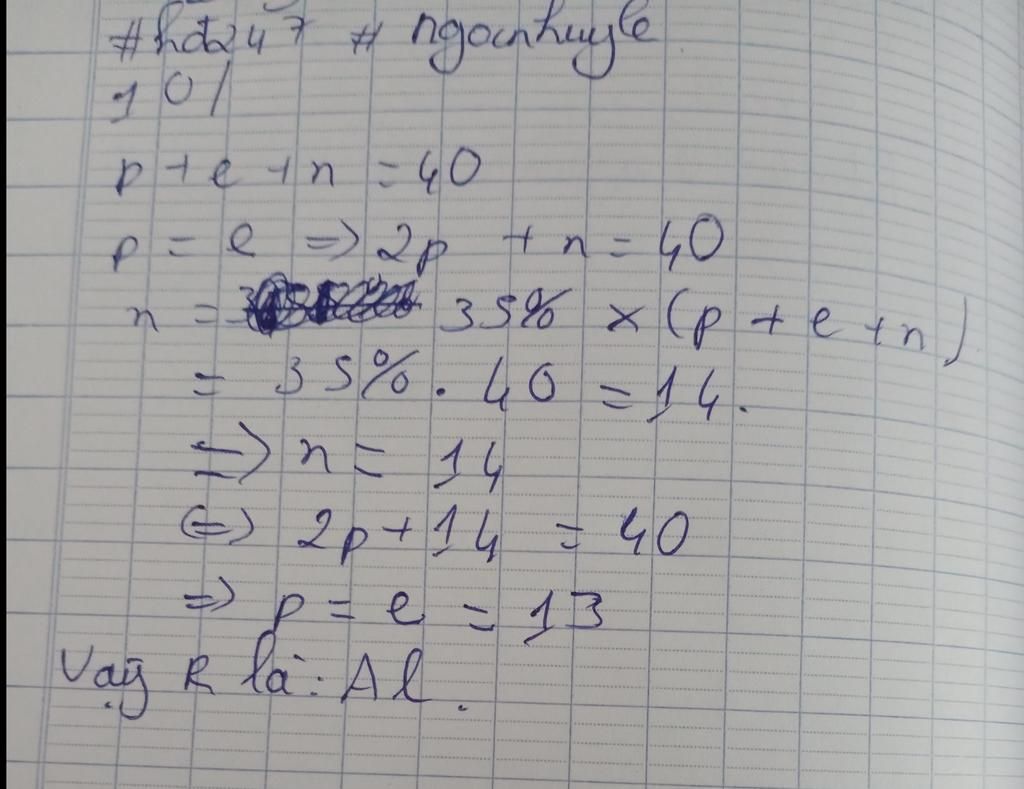 #hđ247 # ngocnhuyle
10/
p + e + n = 40
p = e => 2p + n = 40
n = 35% × (p + e + n)
= 35% . 40 = 14.
=> n = 14
<=> 2p + 14 = 40
=> p = e = 13
Vậy R là : Al.